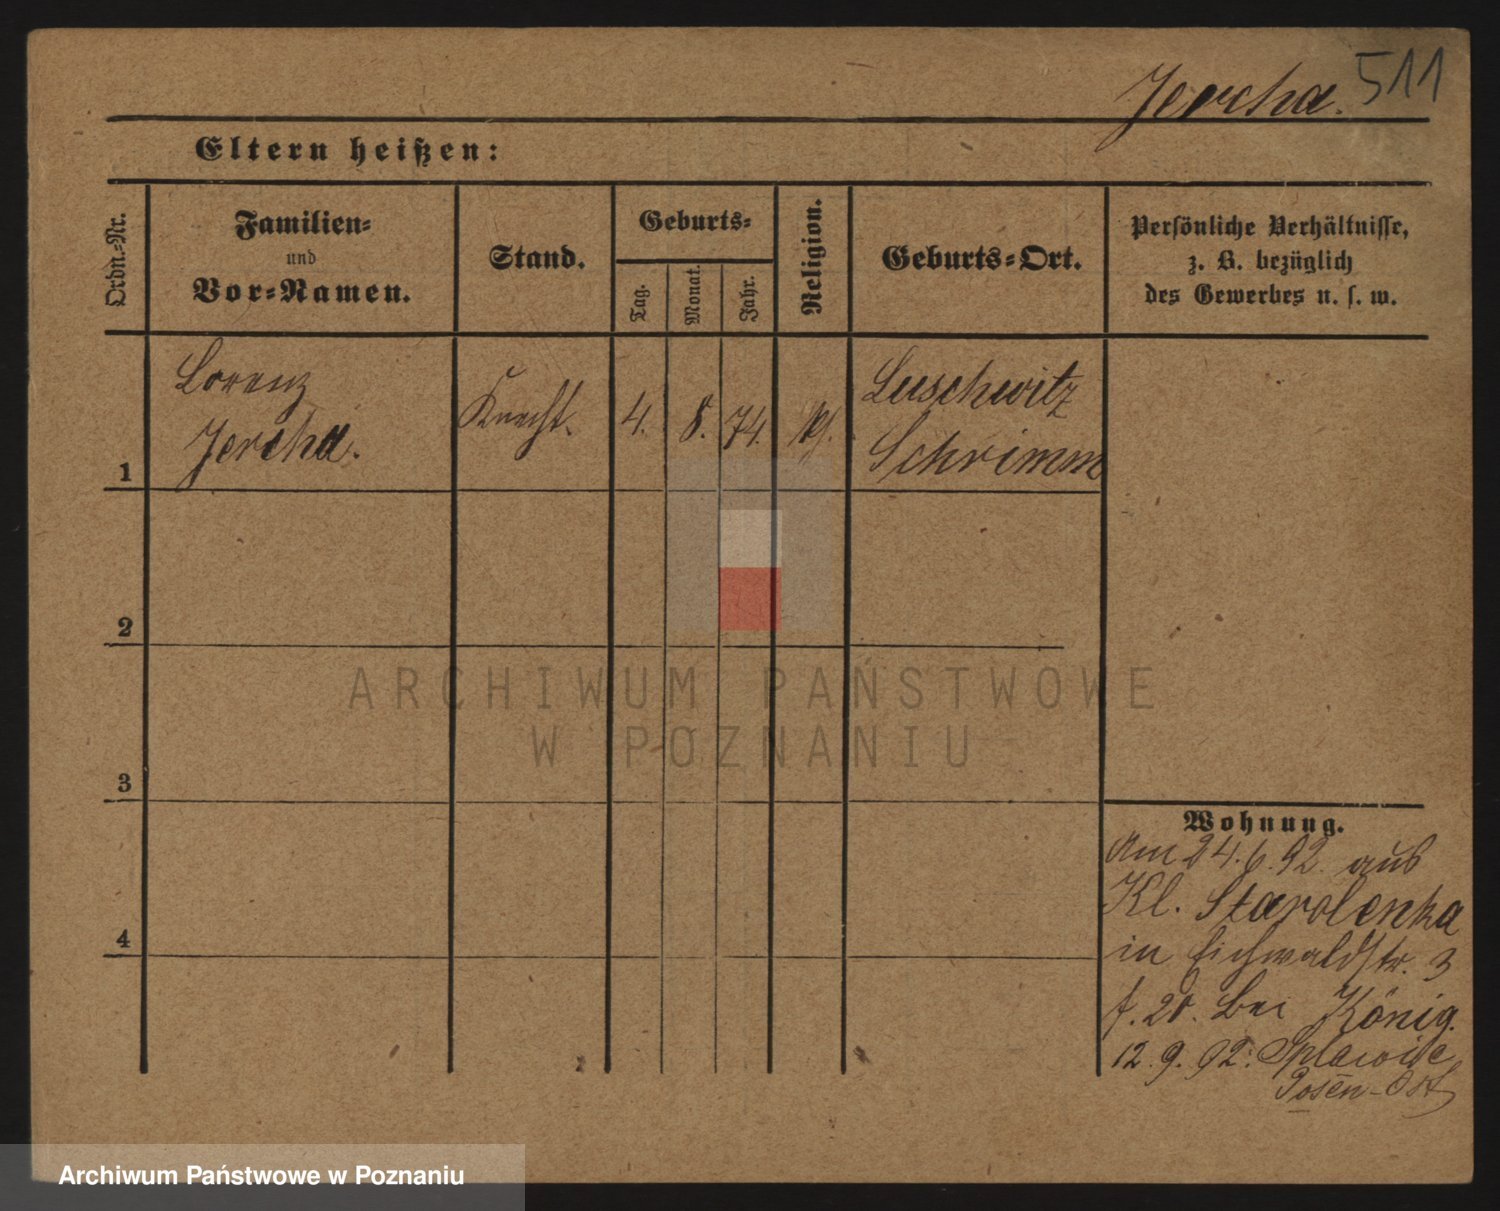 Jercha. 511
Eltern heißen:
Ordn.-Nr.
Familien-
und
Vor-Namen.
Stand.
Geburts-
Tag.
Monat.
Jahr.
Religion.
Geburts-Ort.
Persönliche Verhältnisse,
z. B. bezüglich
des Gewerbes u. s. w.
1
Lorenz
Jercha.
Knecht.
4.
8.
74.
Luschwitz
Schrimm
2
3
4
Wohnung.
Am 24.6.92. aus
Kl. Starolenka
in Eichwaldstr. 3
f. 20. bei König.
12.9.92. Splawie
Posen-Ost
ARCHIWUM PAŃSTWOWE
W POZNANIU
Archiwum Państwowe w Poznaniu